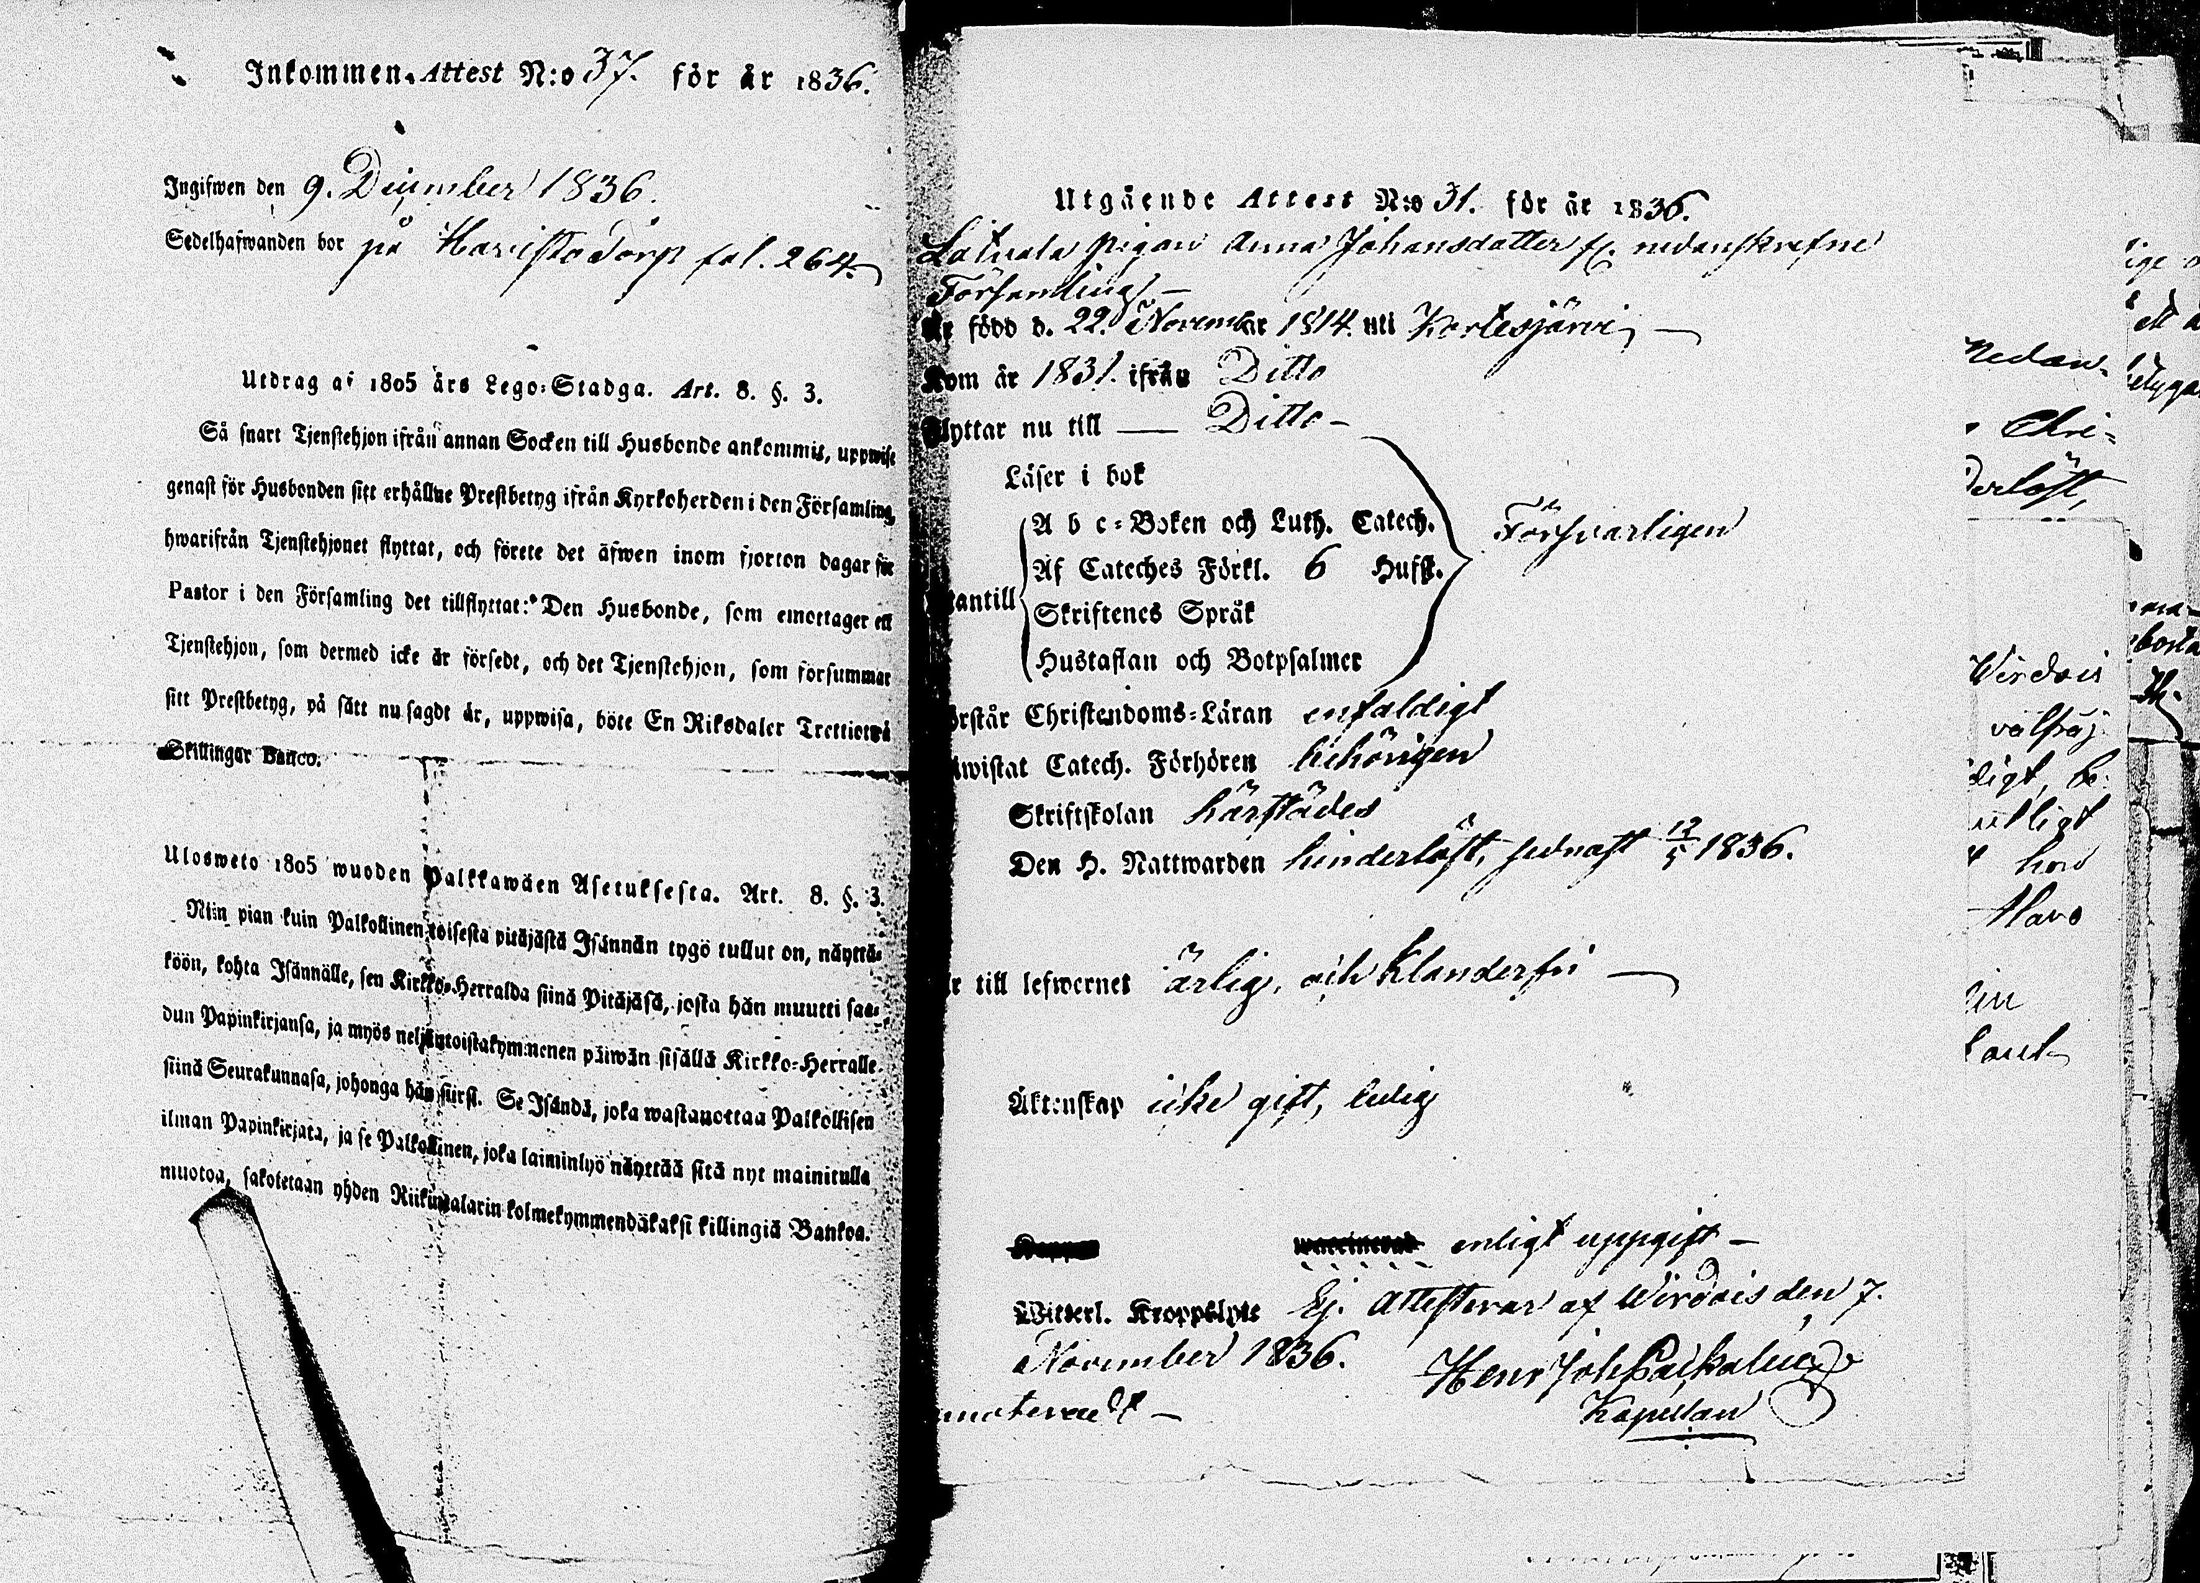 Inkommen. Attest N:o 37. för år 1836.
Ingifwen den 9. December 1836.
Sedelhafwanden bor på Haristo Torp fol. 264.
Utdrag af 1805 års Lego-Stadga. Art. 8. §. 3.
Så snart Tjenstehjon ifrån annan Socken till Husbonde ankommit, uppwise
genast för Husbonden sitt erhållne Prestbetyg ifrån Kyrkoherden i den Församling,
hwarifrån Tjenstehjonet flyttat, och förete det äfwen inom fjorton dagar för
Pastor i den Församling det tillflyttat: Den Husbonde, som emottager ett
Tjenstehjon, som dermed icke är försedt, och det Tjenstehjon, som försummar
sitt Prestbetyg, på sätt nu sagdt är, uppwisa, böte En Riksdaler Trettiotwå
Skillingar Banco.
Ulosweto 1805 wuoden Palkkawäen Asetuksesta. Art. 8. §. 3.
Niin pian kuin Palkollinen toisesta pitäjästä Isännän tygö tullut on, näyttä-
köön, kohta Isännälle, sen Kirkko-Herralda siinä Pitäjäsä, josta hän muutti saa-
dun Papinkirjansa, ja myös neljäntoistakymmenen päiwän sisällä Kirkko-Herralle
siinä Seurakunnasa, johonga hän siirsi. Se Isändä, joka wastanottaa Palkollisen
ilman Papinkirjata, ja se Palkollinen, joka laiminlyö näyttää sitä nyt mainitulla
muotoa, sakotetaan yhden Riikintalarin kolmekymmendäkaksi killingiä Bankoa.
Utgående Attest N:o 31. för år 1836.
Latvala pigan Anna Johansdatter fr. nedanskrefne
Församling –
är född d. 22. November 1814. uti Kortesjärvi, —
Kom år 1831. ifrån Ditto
Flyttar nu till — Ditto –
Läser i bok
A b c-Boken och Luth. Catech.
Försvarligen
Af Cateches Förkl. 6 Hufst.
utantill
Skriftenes Språk
Hustaflan och Botpsalmer
Förstår Christendoms-Läran enfaldigt
Bewistat Catech. Förhören behörigen
Skriftskolan härstädes
Den H. Nattwarden hinderlöst, sednast 12/5 1836.
Är till lefwernet ärlig, och klanderfri —
Äktenskap icke gift, ledig
enligt uppgift –
Witterl. Kroppslyte Ej. Attesterar af Wirdois den 7.
November 1836.
Kapellan
Nedan-
Chri-
derlöst,
Wirdois
digt, be-